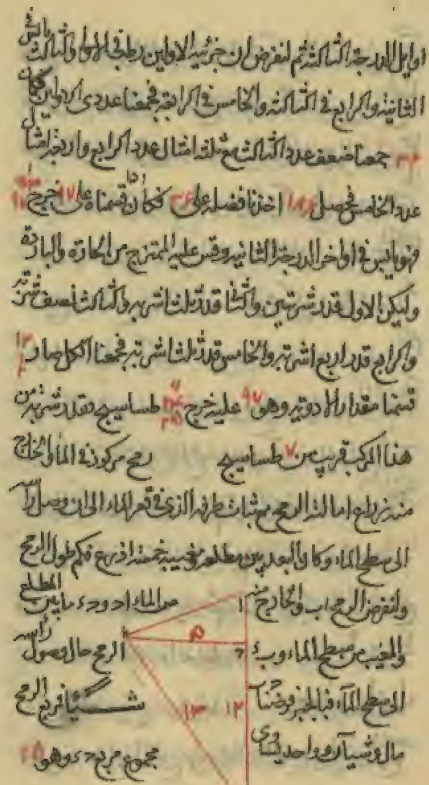 اوايل الدرجة الثالثة ثم لنفرض ان جزئيه الاولين رطب في الاولى والثالث يابس في
الثانية والرابع في الثالثة والخامس في الرابعة فجمعنا عددى الاولين فكان
٣٦ جمعنا ضعف عدد الثالث مع ثلثة امثال عدد الرابع واربعة امثال
عدد الخامس فحصل اخذنا فضله على ٣٦ فكان قسمناه على ٩٧ خرج
فهو يابس فى اواخر الدرجة الثانية وقس عليه الممتزج من الحارة والباردة
وليكن الاول قدر شربتين والثانى قدر ثلث شربة والثالث نصف شربة
والرابع قدر اربع اشربة والخامس قدر ثلث اشربة فجمعنا الكل صار
قسمنا مقدار الادوية وهو ٩٧ عليه خرج طساسيج فقدر شربة من
هذا المركب قريب من ٧ طساسيج رمح مركوز فى الماء والخارج
منه ذراع امالته الريح مع ثبات طرفه الذى فى قعر الماء الى ان وصل راسه
الى سطح الماء وكان البعد بين مطلعه ومغيبه خمسة اذرع فكم طول الرمح
ولنفرض الرمح اب والخارج منه من الماء اد و دء ما بين المطلع
والمغيب من سطح الماء و ب ء الرمح حال وصول راسه
الى سطح الماء فبالجبر فرضنا ب د شيئا فمربع الرمح
مال وشيآن وواحد يساوى مجموع مربع دء وهو ٢٥
١ ٥ ١٢ ١٣